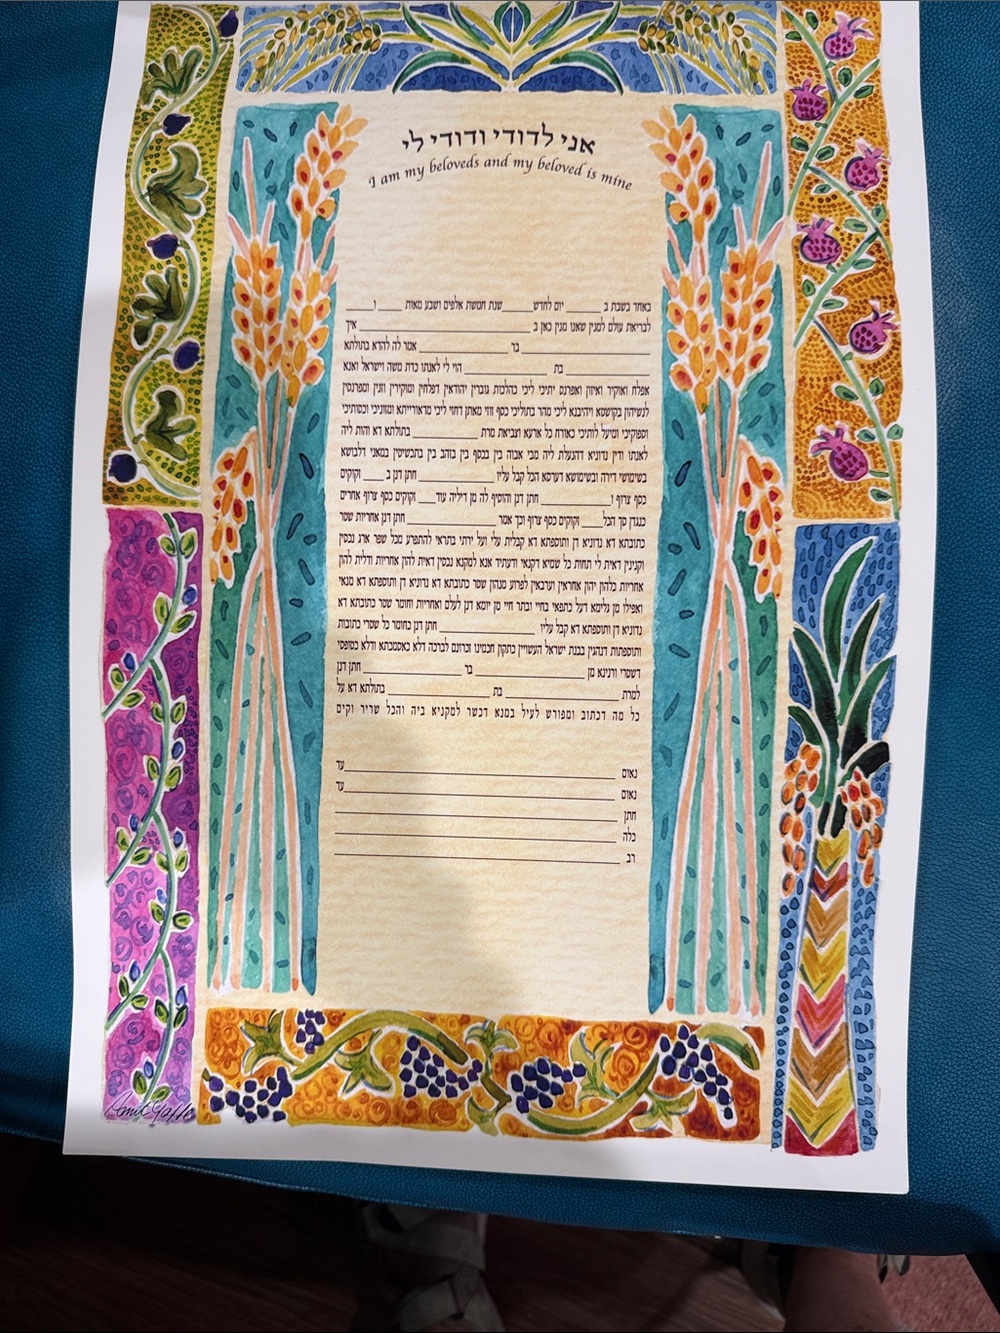 אני לדודי ודודי לי
I am my beloveds and my beloved is mine
באחד בשבת ב_____ יום לחדש_____ שנת חמשת אלפים ושבע מאות ____ ו____
לבריאת עולם למנין שאנו מנין כאן ב_____ איך
_____ בר _____ אמר לה להדא בתולתא
_____ בת _____ הוי לי לאנתו כדת משה וישראל ואנא
אפלח ואוקיר ואיזון ואפרנס יתיכי ליכי כהלכות גוברין יהודאין דפלחין ומוקירין וזנין ומפרנסין
לנשיהון בקושטא ויהיבנא ליכי מהר בתוליכי כסף זוזי מאתן דחזי ליכי מדאורייתא ומזוניכי וכסותיכי
וספוקיכי ומיעל לותיכי כאורח כל ארעא וצביאת מרת _____ בתולתא דא והות ליה
לאנתו ודין נדוניא דהנעלת ליה מבי אבוה בין בכסף בין בזהב בין בתכשיטין במאני דלבושא
בשימושי דירה ובשימושא דערסא הכל קבל עליו _____ חתן דנן ב____ זקוקים
כסף צרוף ו_____ חתן דנן והוסיף לה מן דיליה עוד____ זקוקים כסף צרוף אחרים
כנגדן סך הכל____ זקוקים כסף צרוף וכך אמר _____ חתן דנן אחריות שטר
כתובתא דא נדוניא דן ותוספתא דא קבלית עלי ועל ירתי בתראי להתפרע מכל שפר ארג נכסין
וקנינין דאית לי תחות כל שמיא דקנאי ודעתיד אנא למקנא נכסין דאית להון אחריות ודלית להון
אחריות כלהון יהון אחראין וערבאין לפרוע מנהון שטר כתובתא דא נדוניא דן ותוספתא דא מנאי
ואפילו מן גלימא דעל כתפאי בחיי ובתר חיי מן יומא דנן לעלם ואחריות וחומר שטר כתובתא דא
נדוניא דן ותוספתא דא קבל עליו _____ חתן דנן כחומר כל שטרי כתובות
ותוספתות דנהגין בבנת ישראל העשויין כתקון חכמינו זכרונם לברכה דלא כאסמכתא ודלא כטופסי
דשטרי וקנינא מן _____ בר _____ חתן דנן
למרת _____ בת _____ בתולתא דא על
כל מה דכתוב ומפורש לעיל במנא דכשר למקניא ביה והכל שריר וקים
נאום _____ עד
נאום _____ עד
חתן _____
כלה _____
רב _____